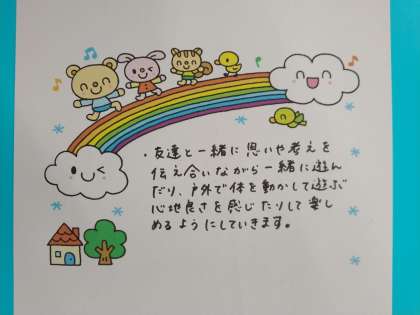 ・友達と一緒に思いや考えを
伝え合いながら一緒に遊ん
だり、戸外で体を動かして遊ぶ
心地良さを感じたりして楽し
めるようにしていきます。